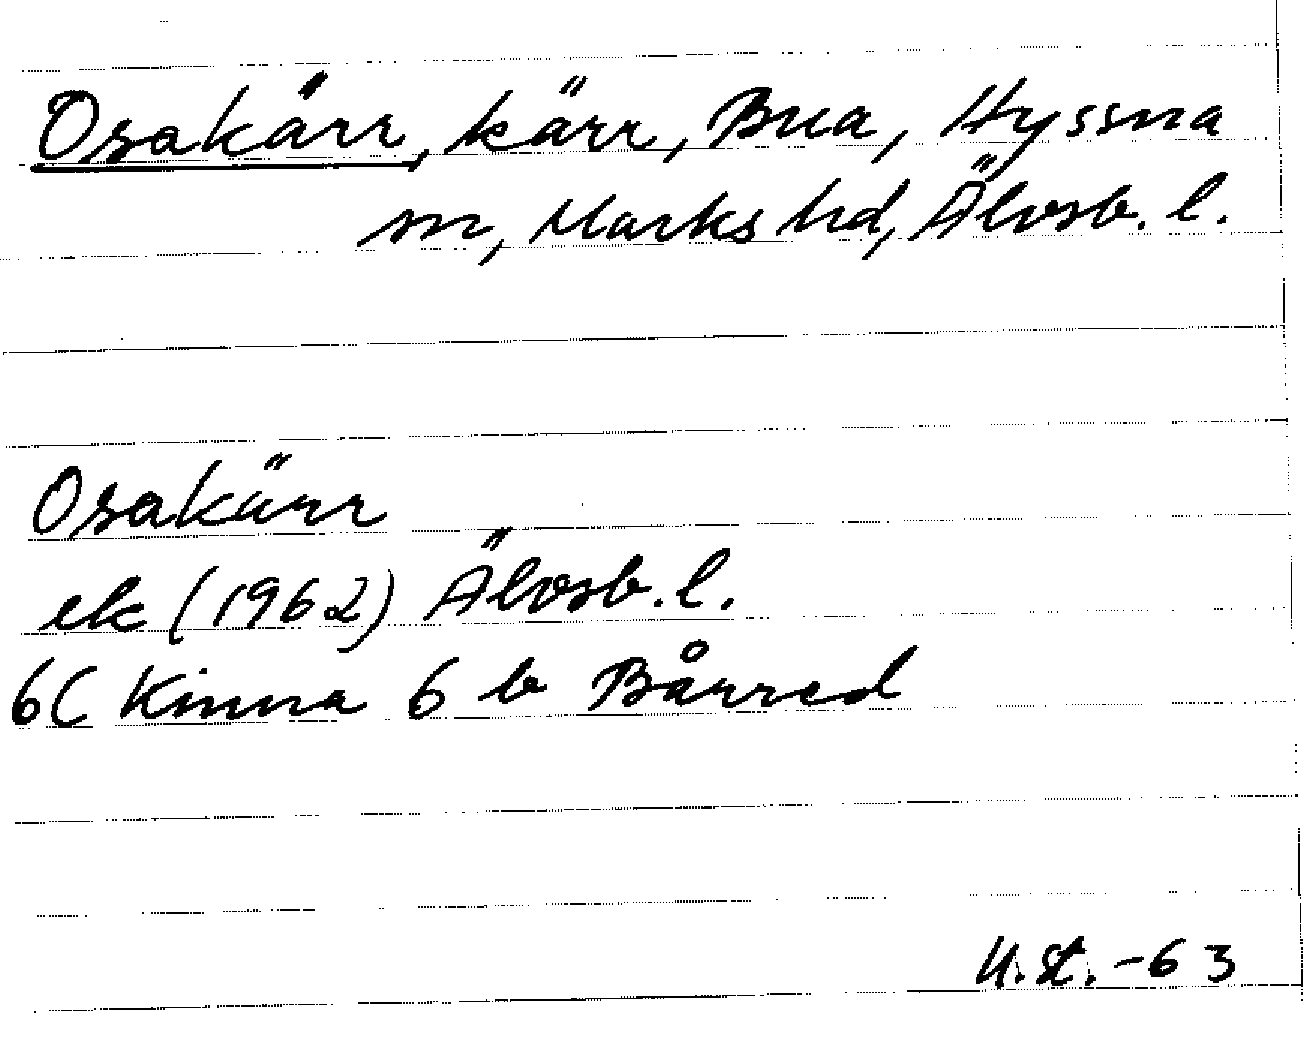 Osakärr, kärr, Bua, Hyssna
sn, Marks hd, Älvsb. l.
Osakärr
ek (1962) Älvsb. l.
6C Kinna 6 b Bårred
U.St. -63